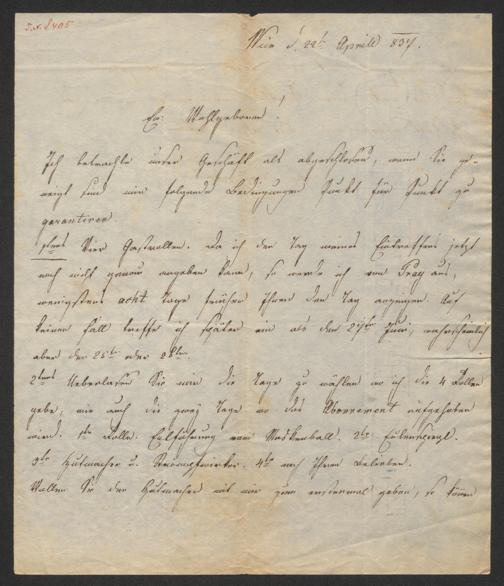 J. N. 8405
Wien d. 22t Aprill 837.
Ew: Wohlgeboren!
Ich betrachte unser Geschäft als abgeschlossen, wenn Sie ge-
neigt sind mir folgende Bedingungen Punkt für Punkt zu
garantiren.
1tens Vier Gastrollen. Da ich den Tag meines Eintreffens jetzt
noch nicht genau angeben kann, so werde ich von Prag aus,
wenigstens acht Tage früher Ihnen den Tag anzeigen. Auf
keinen Fall treffe ich später ein als den Juni, wahrscheinlich
aber den 25ten oder 28ten.
2tens Ueberlassen Sie mir die Tage zu wählen wo ich die 4 Rollen
gebe, wie auch die zwey Tage wo das Abonnement aufgehoben
wird. 1te Rolle. Entführung vom Maskenball. 2te Eulenspiegl.
3te Hutmacher u. Strumpfwirker. 4te nach Ihrem Belieben.
Wollen Sie den Hutmacher mit mir zum erstenmal geben, so können